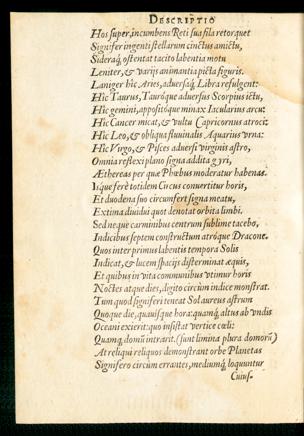 DESCRIPTIO
Hos super, incumbens Reti sua fila retorquet
Signifer ingenti stellarum cinctus amictu,
Sideraq́ ostentat tacito labentia motu
Leniter, & varijs animantia picta figuris.
Laniger hic Aries, aduersaq́ Libra refulgent:
Hic Taurus, Tauróque aduersus Scorpius ictu,
Hic gemini, appositósque minax Iacularius arcu:
Hic Cancer micat, & vultu Capricornus atroci:
Hic Leo, & obliqua fluuinalis Aquarius vrna:
Hic Virgo, & Pisces aduersi virginis astro,
Omnia reflexi plano signa addita gyri,
Æthereas per quæ Phœbus moderatur habenas.
Isque ferè totidem Circus conuertitur horis,
Et duodena suo circumfert signa meatu,
Extima diuidui quot denotat orbita limbi.
Sed neque carminibus centrum sublime tacebo,
Indicibus septem constructum atróque Dracone.
Quos inter primus labentis tempora Solis
Indicat, & lucem spacijs disterminat æquis,
Et quibus in vita communibus vtimur horis
Noctes atque dies, digito circùm indice monstrat.
Tum quod signiferi teneat Sol aureus astrum
Quoque die, quauisque hora: quamq́ altus ab vndis
Oceani exierit: quo insistat vertice cœli:
Quamq́ domū intrarit. (sunt limina plura domorū)
At reliqui reliquos demonstrant orbe Planetas
Signifero circùm errantes, mediumq́ loquuntur
Cuius-